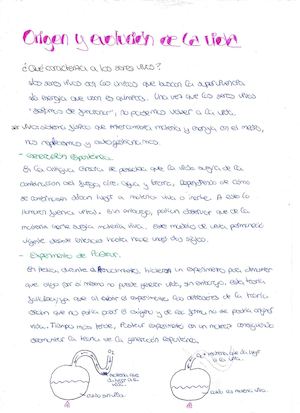 Origen y evolución de la vida
¿Qué caracteriza a los seres vivos?
Los seres vivos son los únicos que buscan la supervivencia.
La energía que usan es química. Una vez que los seres vivos
"dejamos de funcionar", no podemos volver a la vida.
vivos sistema físico que intercambia materia y energía con el medio,
nos replicamos y autogestionamos.
- Generación Espontánea.
En la antigua Grecia se pensaba que la vida surgía de la
combinación del fuego, aire, agua y tierra, dependiendo de cómo
se combinaban daban lugar a materia viva o inerte. A esto lo
llamaron fuerza vital. Sin embargo, podían observar que de la
materia inerte surgía materia viva. Este modelo de vida permaneció
vigente desde entonces hasta hace unos dos siglos.
- Experimento de Pasteur.
En Italia, durante el Renacimiento, hicieron un experimento para demostrar
que algo por sí mismo no puede generar vida, sin embargo, esta teoría
que al cerrar el experimento los defensores de la teoría
decían que no podía entrar el oxígeno y de esa forma no se podría originar
vida. Tiempo más tarde, Pasteur experimentó en un matraz consiguiendo
desmentir la teoría de la generación espontánea.
O₂
materia que da
lugar a la
vida.
caldo
materia que da lugar
a la vida.
caldo sin materia viva.